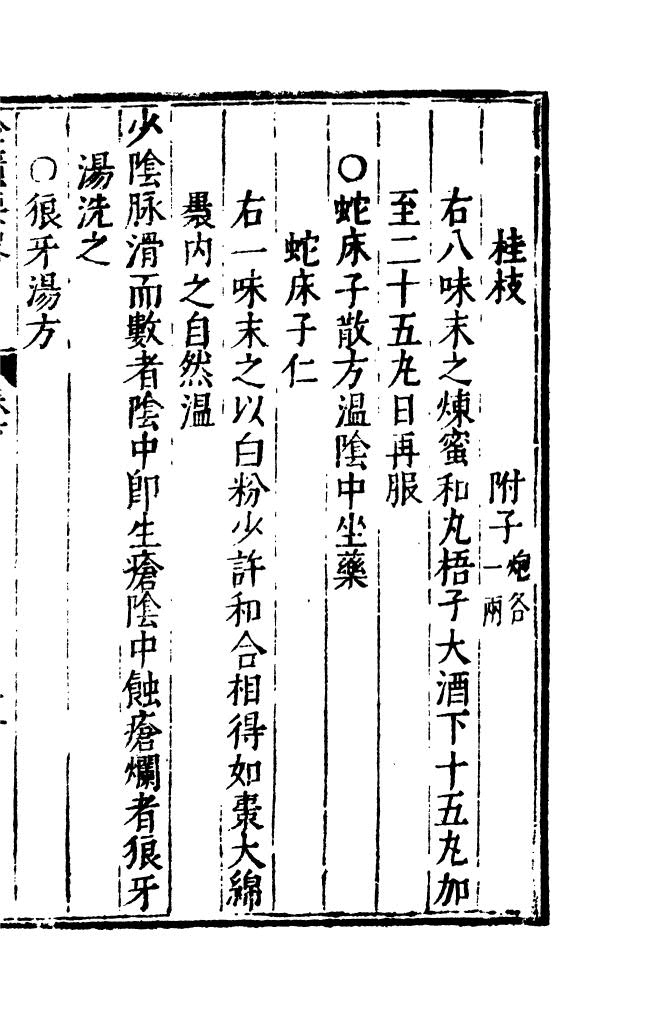 桂枝　附子炮各一兩
右八味末之煉蜜和丸梧子大酒下十五丸加
至二十五丸日再服
○蛇床子散方溫陰中坐藥
蛇床子仁
右一味末之以白粉少許和合相得如棗大綿
裹内之自然溫
少陰脉滑而數者陰中卽生瘡陰中蝕瘡爛者狼牙
湯洗之
○狼牙湯方